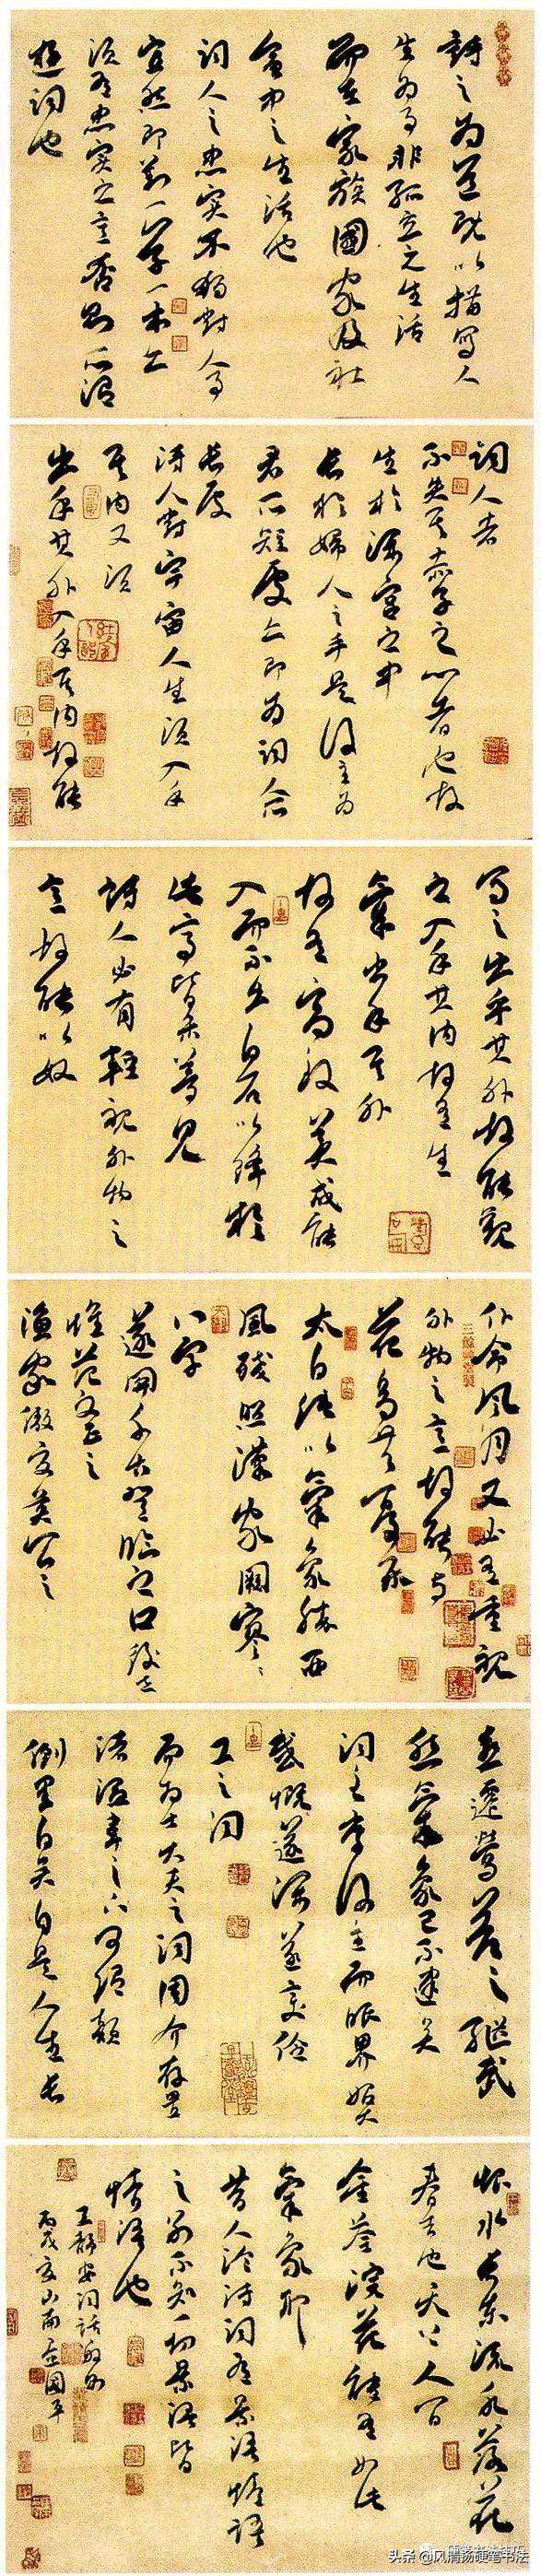 詩之為道既以描寫人
生為事非孤立之生活
而在家族國家及社
會中之生活也
詞人之忠實不獨對人事
宜然即對一草一木亦
須有忠實之意否則所謂
遊詞也
詞人者
不失其赤子之心者也故
生於深宮之中
長於婦人之手是後主為
君所短處亦即為詞人
長處
詩人對宇宙人生須入乎
其內又須
出乎其外入乎其內故能
寫之出乎其外故能觀
之入乎其內故有生
氣出乎其外
故有高致美成能
入而不出白石以降於
此事皆未夢見
詩人必有輕視外物之
意故能以奴
仆命風月又必有重視
外物之意故能與
花鳥共憂樂
太白純以氣象勝西
風殘照漢家闕寥々
八字
遂關千古登臨之口後世
惟范文正之
漁家傲夏英公之
喜遷鶯差足繼武
然氣象已不逮矣
詞至李後主而眼界始大
感慨遂深遂變伶
工之詞
而為士大夫之詞周介存置
諸溫韋之下可謂顛
倒黑白矣自是人生長
恨水長東流水落花
春去也天上人間
金荃浣花能有如此
氣象耶
昔人論詩詞有景語情語
之別不知一切景語皆
情語也
王靜安詞話數則
丙戌夏山南國平
头条 @风清扬硬笔书法